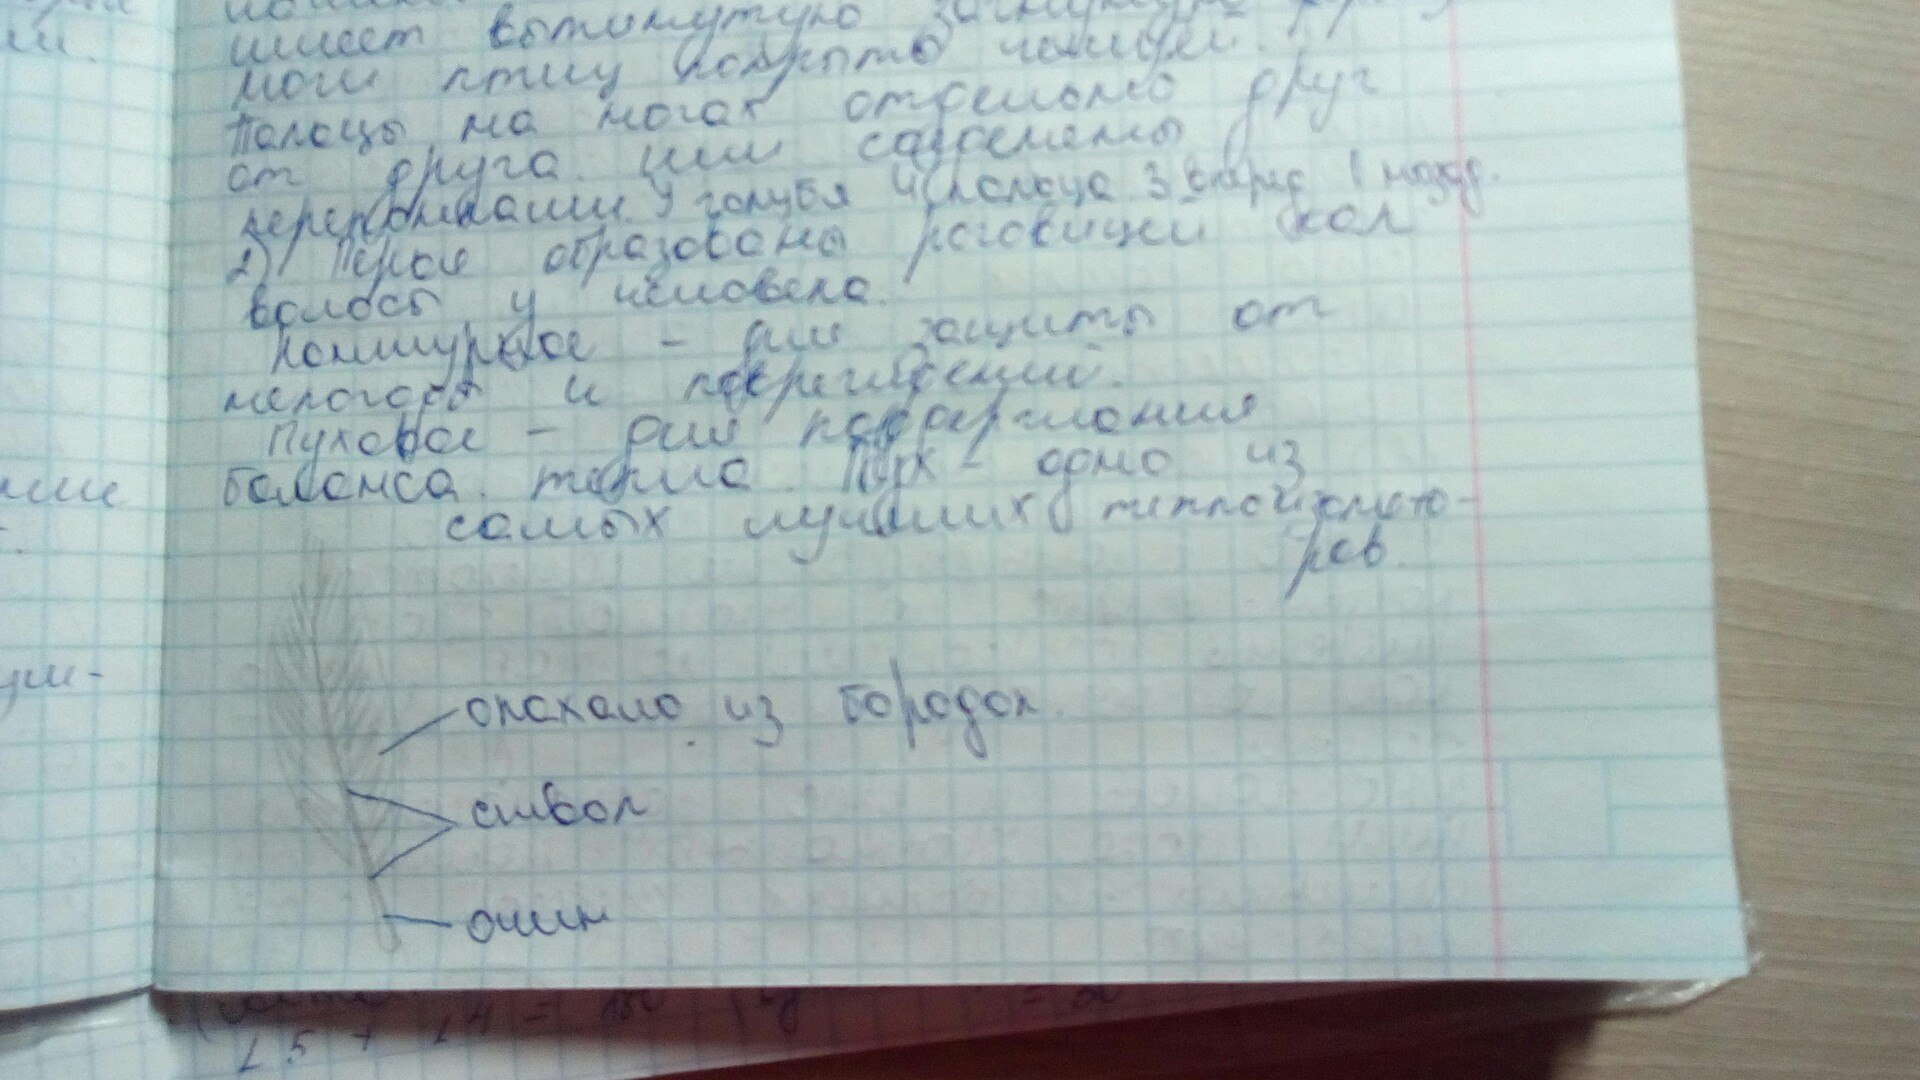 имеет вытянутую загнутую
ноги птиц покрыто чешуей.
Пальцы на ногах отдельно друг
от друга или соединены
перепонками. У голубя 4 пальца 3 вперед 1 назад.
2) Перья образованы роговицей как
волосы у человека.
Контурное - для защиты от
непогоды и повреждений.
Пуховое - для поддержания
баланса тепла. Пух - одно из
самых лучших теплоизолято-
ров.
опахало из бородок
ствол
очин
ние